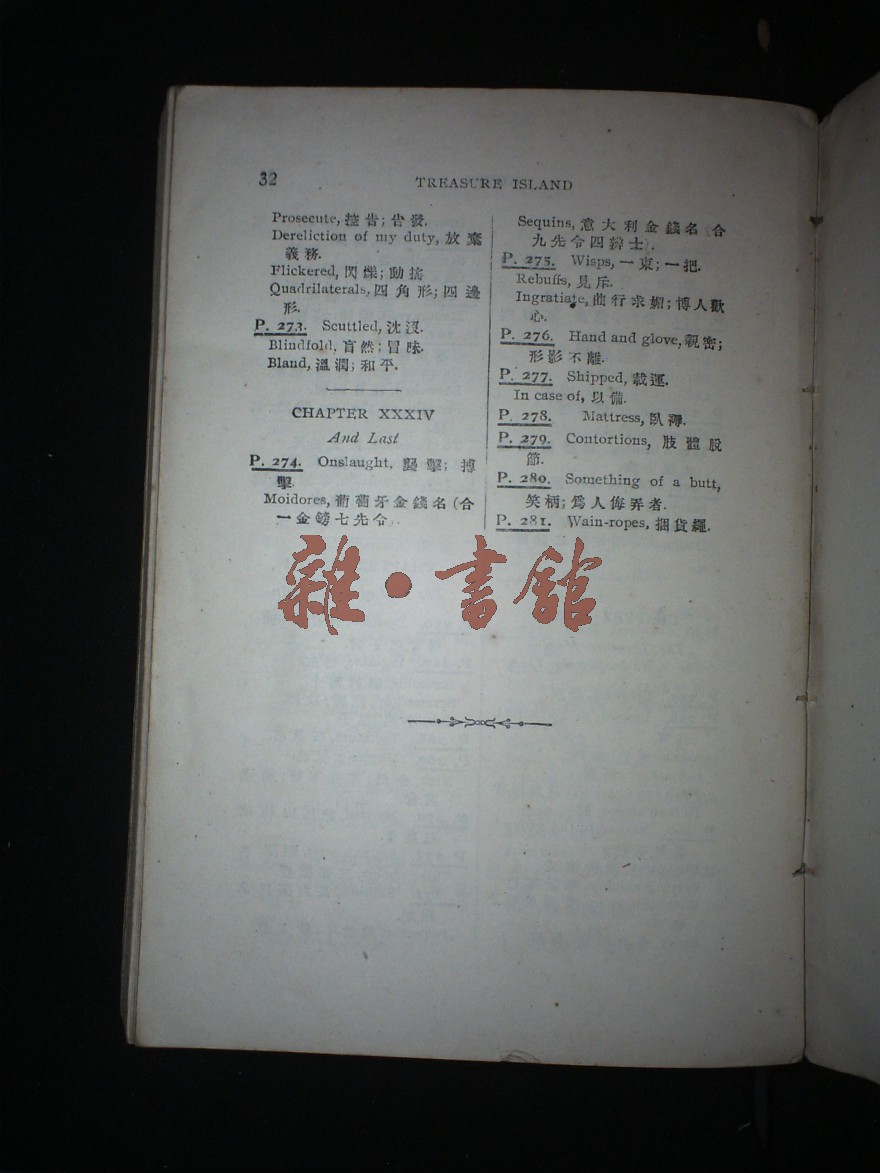 32
TREASURE ISLAND
Prosecute, 控告; 告發.
Dereliction of my duty, 放棄
義務.
Flickered, 閃爍; 動搖
Quadrilaterals, 四角形; 四邊
形.
P. 273. Scuttled, 沈沒.
Blindfold, 盲然; 冒昧.
Bland, 溫潤; 和平.
CHAPTER XXXIV
And Last
P. 274. Onslaught, 襲擊; 搏
擊.
Moidores, 葡萄牙金錢名 (合
一金鎊七先令.
Sequins, 意大利金錢名 (合
九先令四辨士).
P. 275. Wisps, 一束; 一把.
Rebuffs, 見斥.
Ingratiate, 曲行求媚; 博人歡
心.
P. 276. Hand and glove, 親密;
形影不離.
P. 277. Shipped, 載運.
In case of, 以備.
P. 278. Mattress, 臥褥.
P. 279. Contortions, 肢體脫
節.
P. 280. Something of a butt,
笑柄; 爲人侮弄者.
P. 281. Wain-ropes, 捆貨繩.
雜·書館